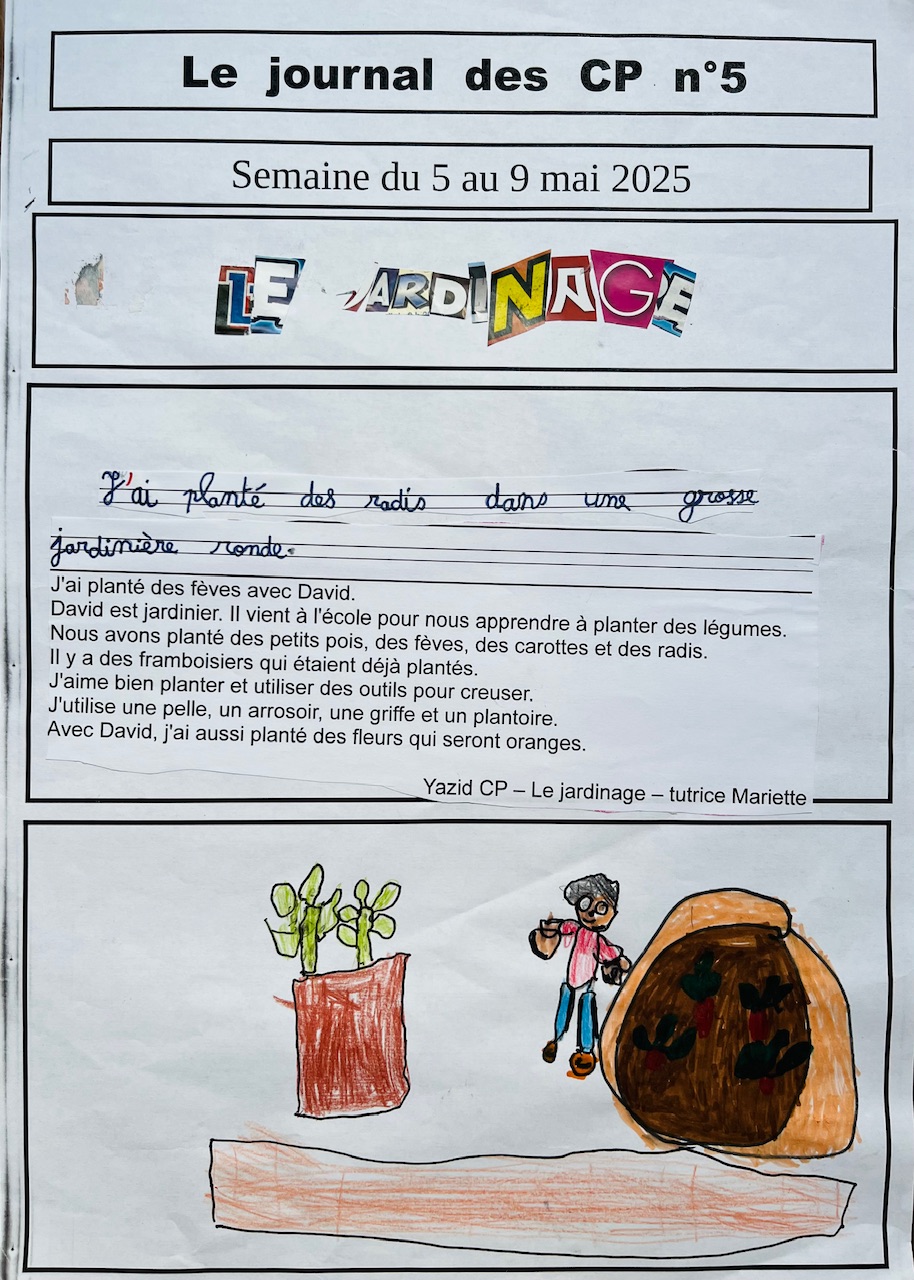 Le journal des CP n°5
Semaine du 5 au 9 mai 2025
LE JARDINAGE
J'ai planté des radis dans une grosse
jardinière ronde.
J'ai planté des fèves avec David.
David est jardinier. Il vient à l'école pour nous apprendre à planter des légumes.
Nous avons planté des petits pois, des fèves, des carottes et des radis.
Il y a des framboisiers qui étaient déjà plantés.
J'aime bien planter et utiliser des outils pour creuser.
J'utilise une pelle, un arrosoir, une griffe et un plantoire.
Avec David, j'ai aussi planté des fleurs qui seront oranges.
Yazid CP – Le jardinage – tutrice Mariette